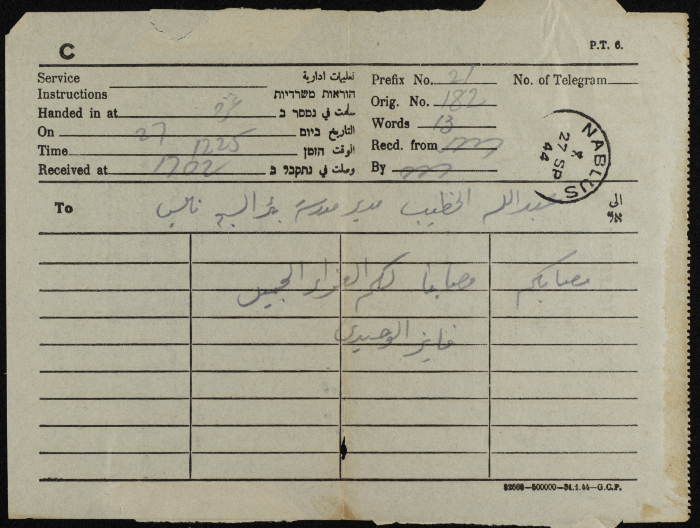 C
P.T. 6.
Service تعليمات ادارية
Instructions הוראות משרדיות
Handed in at غزة سلمت في נמסר ב
On 27 التاريخ ביום
Time 1225 الوقت הזמן
Received at 1702 وصلت في נתקבל ב
Prefix No. 21
No. of Telegram
Orig. No. 182
Words 13
Recd. from
By
NABLUS
27 SP
44
To عبدالله الخطيب مدير مدرسة بئر السبع نابلس الى אל
مصابكم مصابنا لكم العزاء الجميل
فايز الوحيدي
52668—500000—31.1.44—G.C.P.